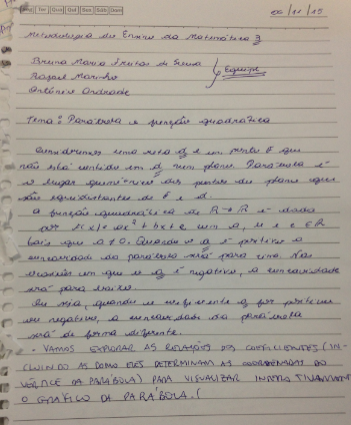 Seg Ter Qua Qui Sex Sáb Dom
Metodologia do Ensino da Matemática 3
Bruna Maria de
Rafael Marinho
Equipe
Antônio Andrade
Tema: Parábola e função quadrática
Consideremos uma reta d e um ponto F que
não está contido em d, num plano. Parábola é
o lugar geométrico dos pontos do plano que
são equidistantes de F e d.
A função quadrática de R→R é dada
por f(x) = ax²+bx+c com a, b e c ∈ R
tais que a≠0. Quando a é positivo a
concavidade da parábola será para cima. Nos
em que a é negativo, a concavidade
será para baixo.
Ou seja, quando o coeficiente a for positivo
ou negativo, a concavidade da parábola
será de forma diferente.
- VAMOS EXPLORAR AS RELAÇÕES DOS COEFICIENTES (IN-
CLUINDO AS COMO ELES DETERMINAM AS COORDENADAS DO
VÉRTICE DA PARÁBOLA) PARA VISUALIZAR
O GRÁFICO DA PARÁBOLA.